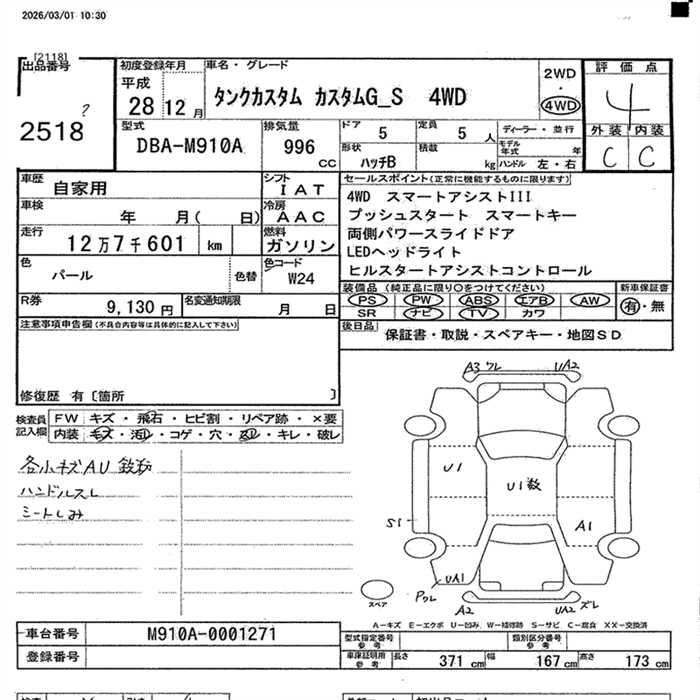 2026/03/01 10:30
[2118]
出品番号
2518
?
初度登録年月
平成
28 12 月
車名・グレード
タンクカスタム カスタムG_S 4WD
2WD
4WD
評価点
4
外装 内装
C C
型式
DBA-M910A
排気量
996
CC
ドア
5
定員
5 人
形状
ハッチB
積載
kg
ディーラー・並行
モデル年式 年
ハンドル 左・右
車歴
自家用
シフト
IAT
車検
年 月( 日)
冷房
AAC
走行
12万7千601 km
燃料
ガソリン
色
パール
色替
色コード
W24
R券
9,130 円
名変通知期限
月 日
セールスポイント(正常に機能するものに限ります)
4WD スマートアシストIII
プッシュスタート スマートキー
両側パワースライドドア
LEDヘッドライト
ヒルスタートアシストコントロール
装備品(純正品に限り○をつけてください)
PS PW ABS エアB AW
SR ナビ TV カワ
新車保証書
有・無
後日品
保証書・取説・スペアキー・地図SD
注意事項申告欄(不具合内容等は具体的に記入して下さい)
修復歴 有〔箇所 〕
検査員記入欄
FW キズ・飛石・ヒビ割・リペア跡・×要
内装 キズ・汚レ・コゲ・穴・スレ・キレ・破レ
各小キズAU 鈑務
ハンドルスレ
シートしみ
A3 ワレ
UA2
U1
U1数
S1
A1
UA1
Pワレ
A2
UA2 ズレ
スペア
A-キズ E-エクボ U-凹み W-補修跡 S-サビ C-腐食 XX-交換済
車台番号
M910A-0001271
登録番号
型式指定番号
参考
類別区分番号
参考
車庫証明用
参考
長さ 371 cm 幅 167 cm 高さ 173 cm